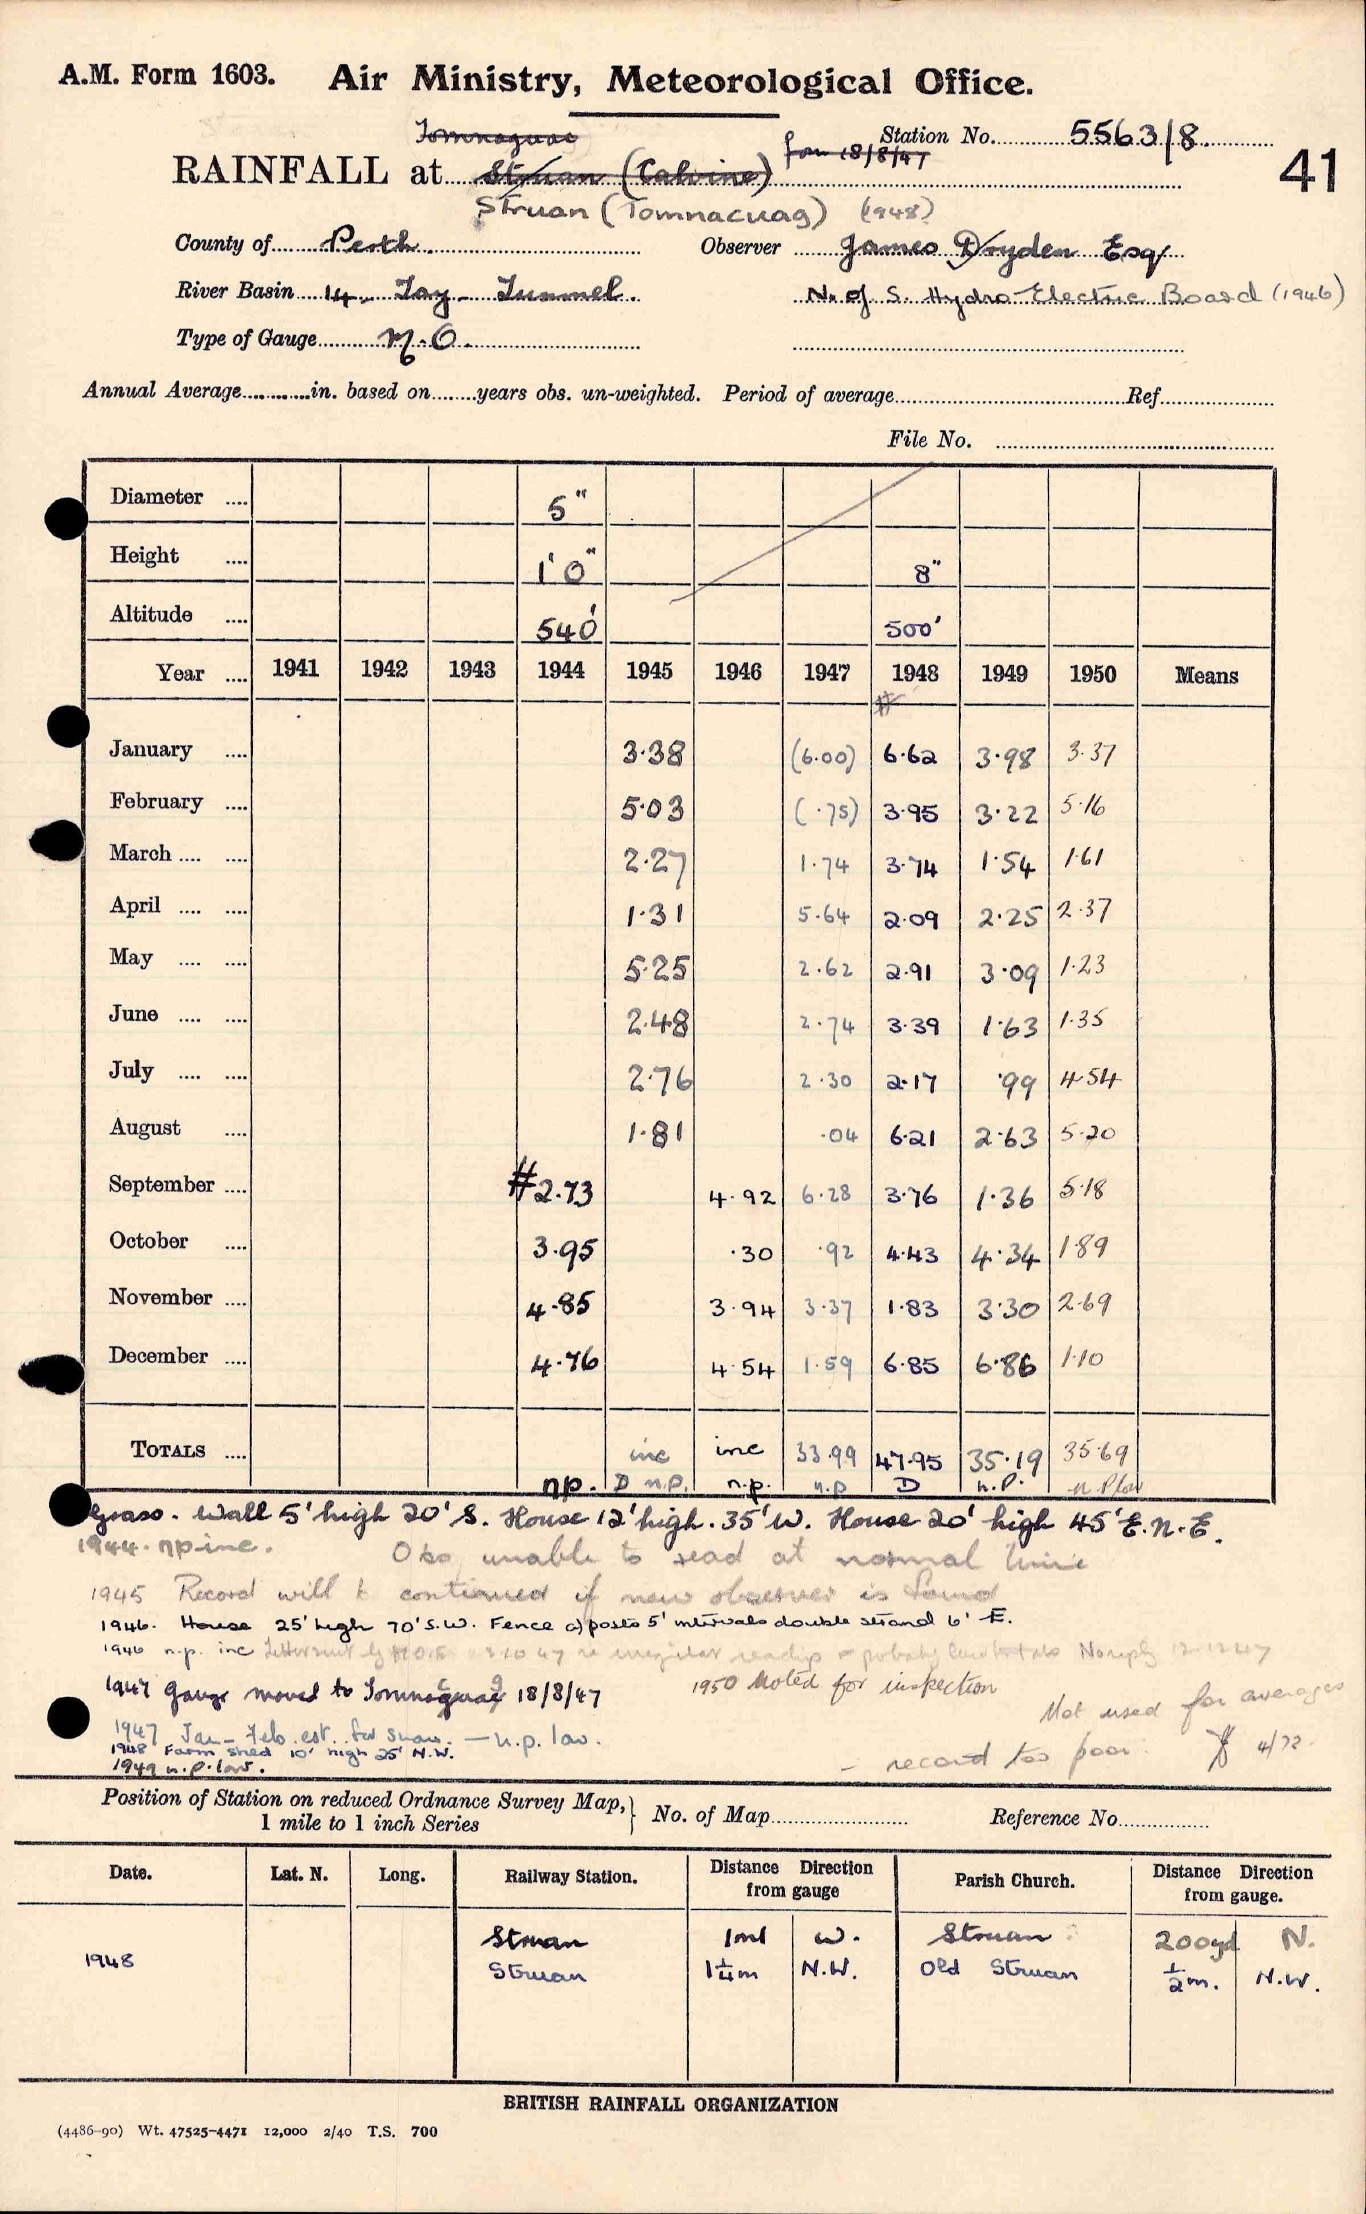 A.M. Form 1603. Air Ministry, Meteorological Office.
Station No. 5563/8.
41
Tomnaguae
from 18/8/47
RAINFALL at Struan (Calvine)
Struan (Tomnacuag) (1948)
County of Perth. Observer James Dryden Esq
River Basin 14. Tay - Tummel. N. of S. Hydro-Electric Board (1946)
Type of Gauge M.O.
Annual Average in. based on years obs. un-weighted. Period of average Ref
File No.
Diameter 5"
Height 1'0" 8"
Altitude 540' 500'
Year 1941 1942 1943 1944 1945 1946 1947 1948 1949 1950 Means
#
January 3.38 (6.00) 6.62 3.98 3.37
February 5.03 (.75) 3.95 3.22 5.16
March 2.27 1.74 3.74 1.54 1.61
April 1.31 5.64 2.09 2.25 2.37
May 5.25 2.62 2.91 3.09 1.23
June 2.48 2.74 3.39 1.63 1.35
July 2.76 2.30 2.17 .99 4.54
August 1.81 .04 6.21 2.63 5.20
September #2.73 4.92 6.28 3.76 1.36 5.18
October 3.95 .30 .92 4.43 4.34 1.89
November 4.85 3.94 3.37 1.83 3.30 2.69
December 4.76 4.54 1.59 6.85 6.86 1.10
TOTALS inc inc 33.99 47.95 35.19 35.69
np. D n.p. n.p. n.p D n.P. n.P low
Grass. Wall 5' high 20' S. House 12' high. 35' W. House 20' high 45' E.N.E.
1944. np inc. Obs unable to read at normal time
1945 Record will be continued if new observer is found
1946. House 25' high 70' S.W. Fence of posts 5' intervals double strand 6' E.
1946 n.p. inc No reply 12.12.47
1947 Gauge moved to Tomnaguag 18/8/47 1950 Noted for inspection
Not used for averages
1947 Jan - Feb. est. for snow. - n.p. low.
1948 Farm shed 10' high 25' N.W. - record too poor. 4/72.
1949 n.p. low.
Position of Station on reduced Ordnance Survey Map, 1 mile to 1 inch Series } No. of Map Reference No.
Date. Lat. N. Long. Railway Station. Distance Direction from gauge Parish Church. Distance Direction from gauge.
Struan 1ml W. Struan 200yd N.
1948 Struan 1¼m N.W. Old Struan ½m. N.W.
BRITISH RAINFALL ORGANIZATION
(4486-90) Wt. 47525-4471 12,000 2/40 T.S. 700